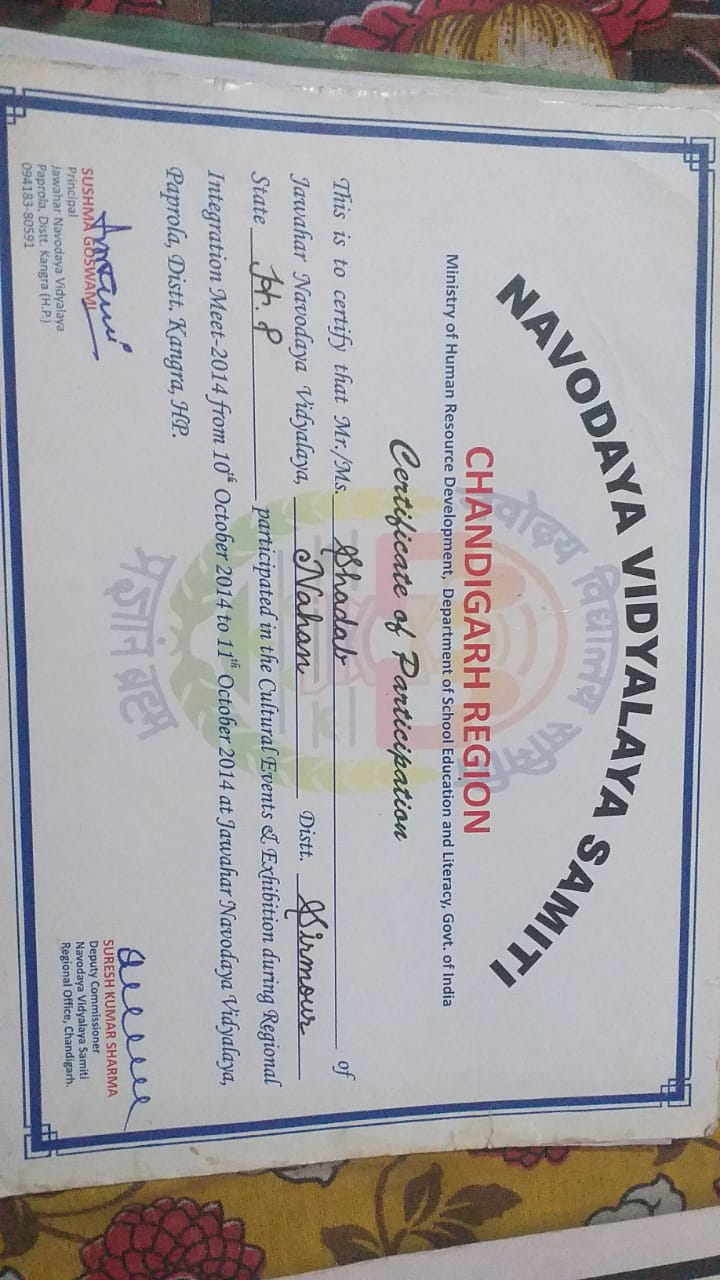 NAVODAYA VIDYALAYA SAMITI
CHANDIGARH REGION
Ministry of Human Resource Development, Department of School Education and Literacy, Govt. of India
Certificate of Participation
This is to certify that Mr./Ms. Shadab of
Jawahar Navodaya Vidyalaya, Nahan Distt. Sirmour
State H.P participated in the Cultural Events & Exhibition during Regional
Integration Meet-2014 from 10th October 2014 to 11th October 2014 at Jawahar Navodaya Vidyalaya,
Paprola, Distt. Kangra, HP.
नवोदय विद्यालय समिति
प्रज्ञानं ब्रह्म
SUSHMA GOSWAMI
Principal
Jawahar Navodaya Vidyalaya
Paprola, Distt. Kangra (H.P.)
094183-80591
SURESH KUMAR SHARMA
Deputy Commissioner
Navodaya Vidyalaya Samiti
Regional Office, Chandigarh.